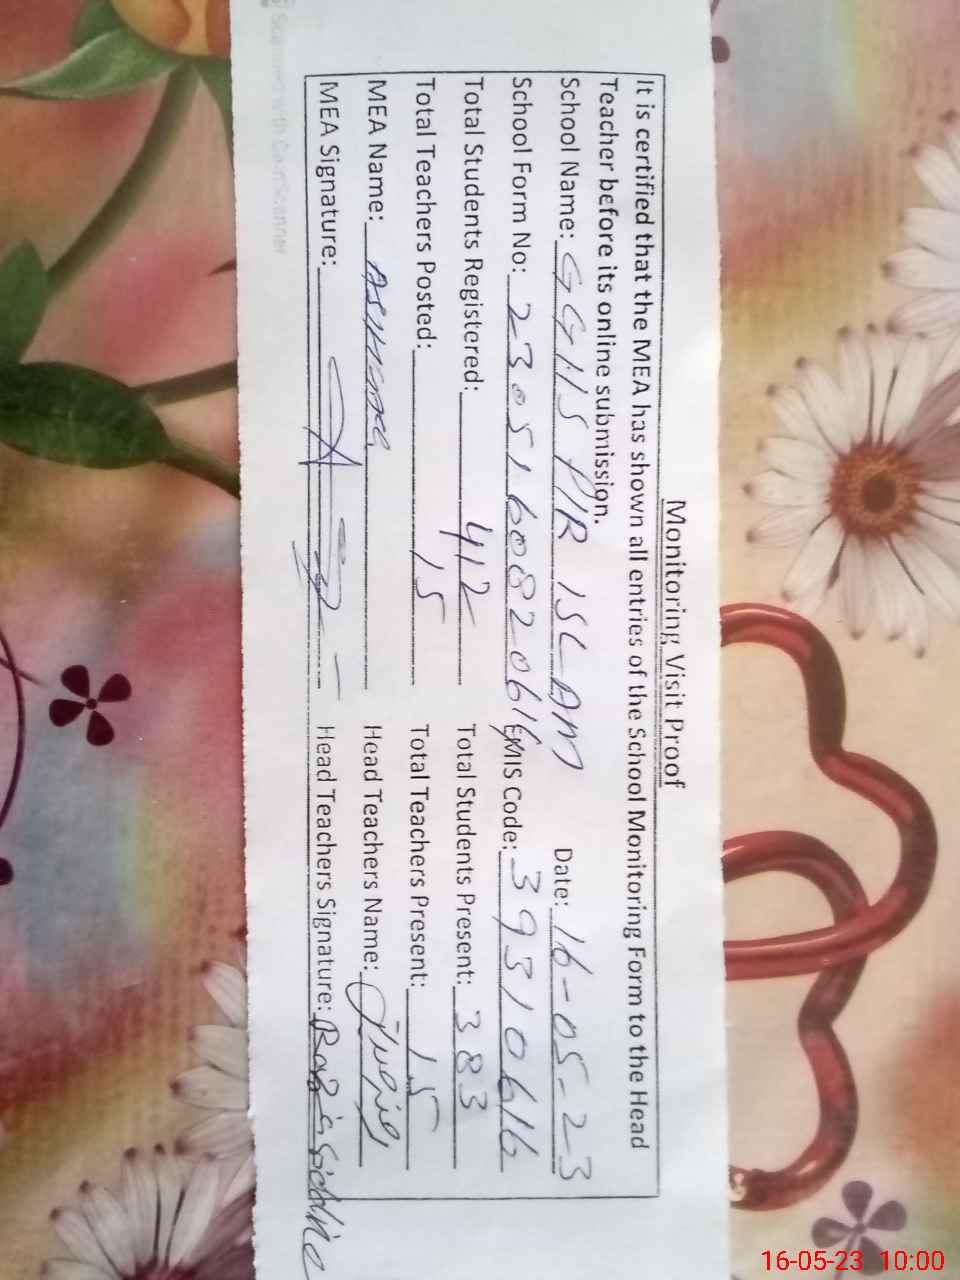 Monitoring Visit Proof
It is certified that the MEA has shown all entries of the School Monitoring Form to the Head
Teacher before its online submission.
School Name: GGHS PIR ISLAM Date: 16-05-23
School Form No: 2305160820616 EMIS Code: 39310616
Total Students Registered: 412 Total Students Present: 383
Total Teachers Posted: 15 Total Teachers Present: 15
MEA Name: Head Teachers Name:
MEA Signature: Head Teachers Signature:
Scanned with CamScanner
16-05-23 10:00